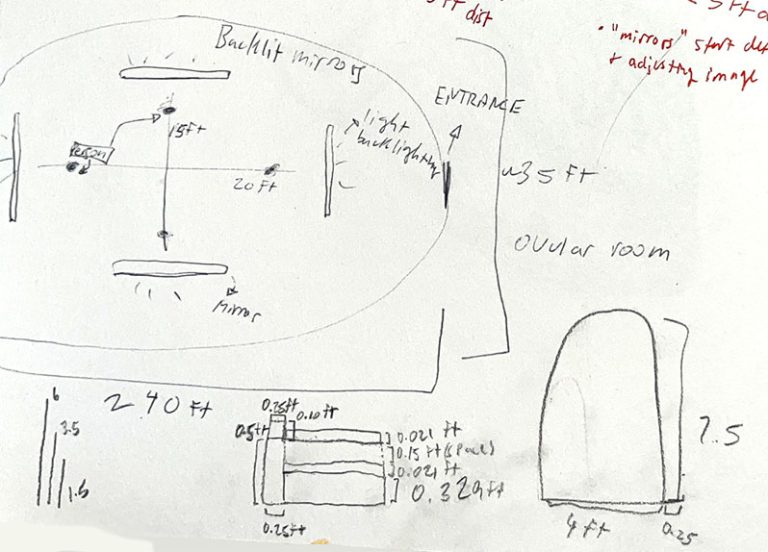 ft dist
5 ft
• "mirrors" start
+ adjusting image
Backlit mirrors
ENTRANCE
15ft
light
backlighting
Person
20 Ft
~35 ft
Ovular room
Mirror
~40 Ft
6
3.5
1.5
0.25ft
0.10ft
0.5ft
0.021 ft
0.15 ft (space)
0.021 ft
0.329ft
0.25ft
7.5
4 ft
0.25